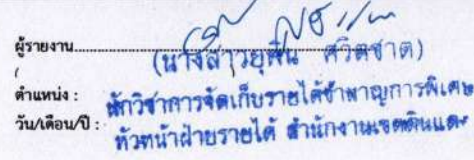 ผู้รายงาน
(นางสาวยุพิน ศวิตชาต)
(
ตำแหน่ง : นักวิชาการจัดเก็บรายได้ชำนาญการพิเศษ
วัน/เดือน/ปี : หัวหน้าฝ่ายรายได้ สำนักงานเขตดินแดง